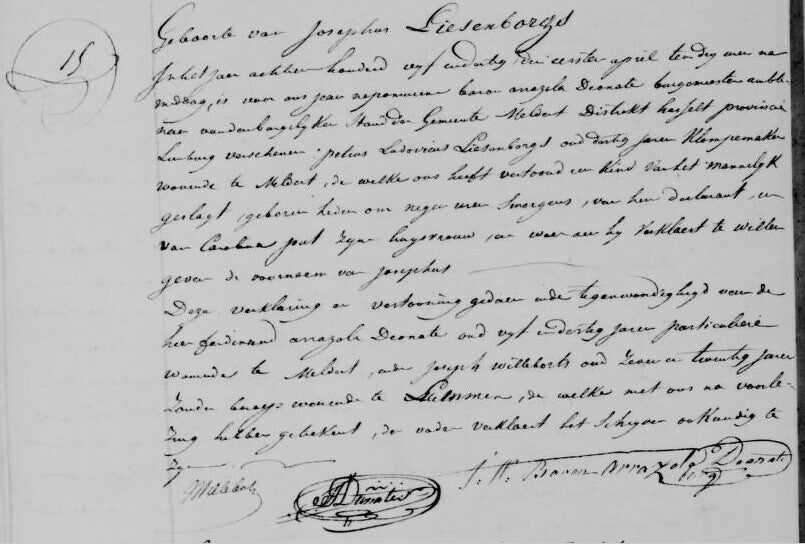 15
Geboorte van Josephus Liesenborgs
In het jaar achtien honderd vyf endertig den eersten april ten dry uren na
middag, is voor ons jean nepomucene baron arrazola Deonate burgemeester ambte-
naer van den burgelyken Stand der Gemeente Meldert Distrikt hasselt provincie
Limburg verschenen petrus Ludovicus Liesenborgs oud dertig jaren Klompemaker
wonende te Meldert, de welke ons heeft vertoond een Kind van het mannelyk
geslagt, geboren heden om negen uren Smorgens, van hem declarant, en
van Carolina put zyne huysvrouw, en waer aen hy Verklaert te willen
geven de voornaem van Josephus
Deze verklaring en vertooning gedaen inde tegenwoordigheyd van de
heer ferdinand arrazola Deonate oud vyf en dertig jaren particuliere
wonende te Meldert, ende Joseph Willeborts oud Zeven en twentig jaren
Zonder beroep wonende te Lummen, de welke met ons na voorle-
zing hebben geteekent, de vader verklaert het Schryven onkundig te
zyn
Willeborts
Deonate
J. N. Baron Arrazola Deonate